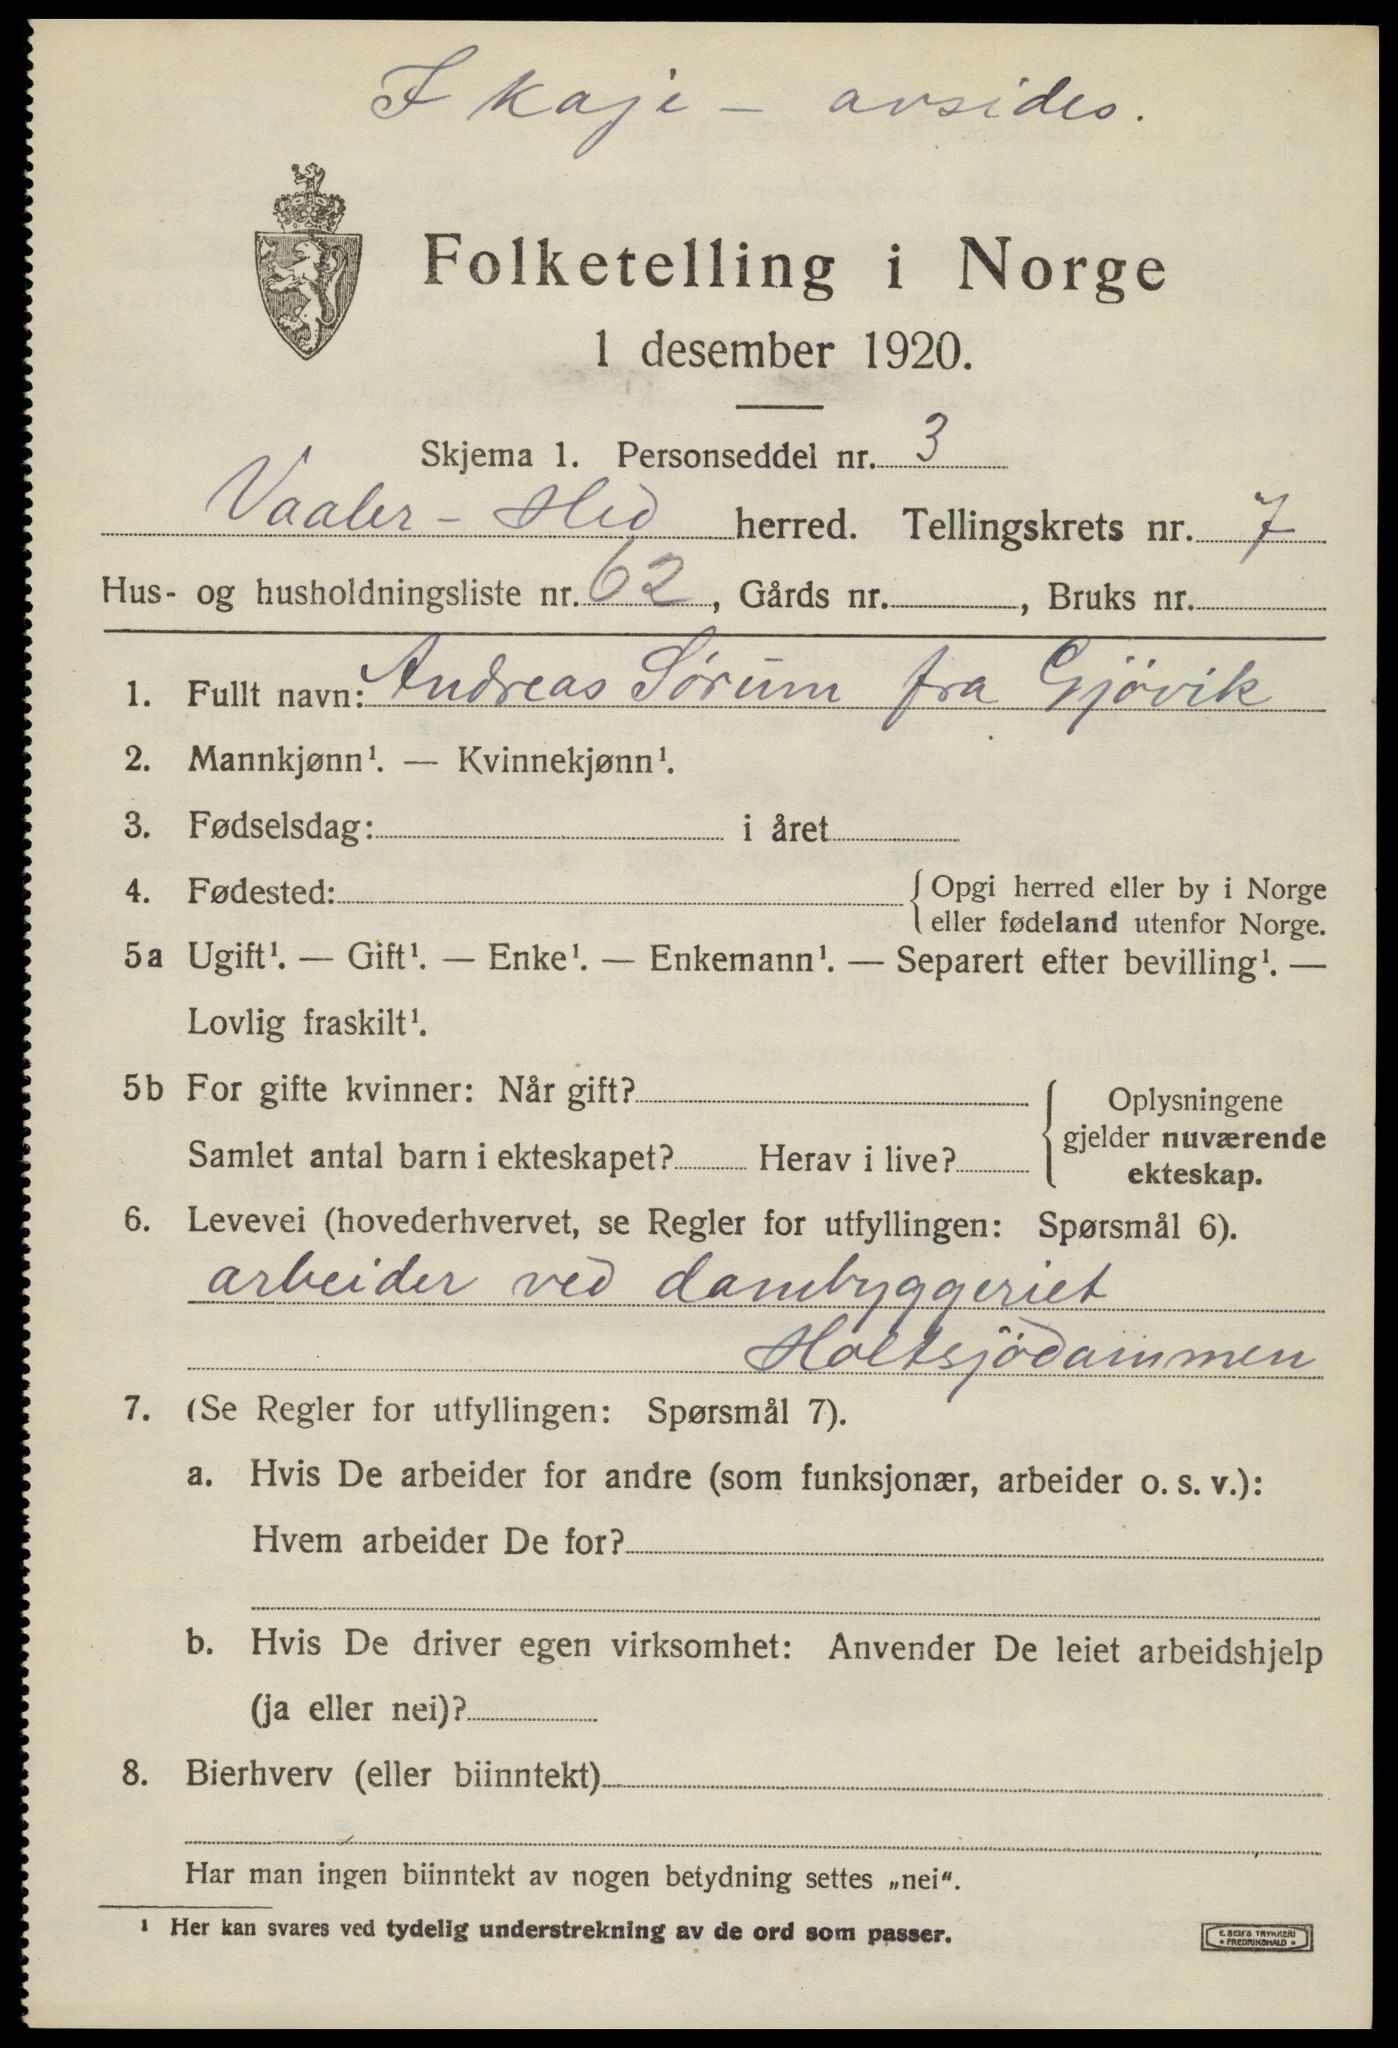 I kaje - avsides.
Folketelling i Norge
1 desember 1920.
Skjema 1. Personseddel nr. 3
Vaaler - Hed herred. Tellingskrets nr. 7
Hus- og husholdningsliste nr. 62, Gårds nr. , Bruks nr.
1. Fullt navn: Andreas Sørum fra Gjövik
2. Mannkjønn¹. — Kvinnekjønn¹.
3. Fødselsdag: i året
4. Fødested: { Opgi herred eller by i Norge
eller fødeland utenfor Norge.
5a Ugift¹. — Gift¹. — Enke¹. — Enkemann¹. — Separert efter bevilling¹. —
Lovlig fraskilt¹.
5b For gifte kvinner: Når gift? { Oplysningene
gjelder nuværende
Samlet antal barn i ekteskapet? Herav i live? ekteskap.
6. Levevei (hovederhvervet, se Regler for utfyllingen: Spørsmål 6).
arbeider ved dambyggeriet
Holtsjödammen
7. (Se Regler for utfyllingen: Spørsmål 7).
a. Hvis De arbeider for andre (som funksjonær, arbeider o. s. v.):
Hvem arbeider De for?
b. Hvis De driver egen virksomhet: Anvender De leiet arbeidshjelp
(ja eller nei)?
8. Bierhverv (eller biinntekt)
Har man ingen biinntekt av nogen betydning settes „nei“.
¹ Her kan svares ved tydelig understrekning av de ord som passer.
E. SEM'S TRYKKERI
• FREDRIKSHALD •